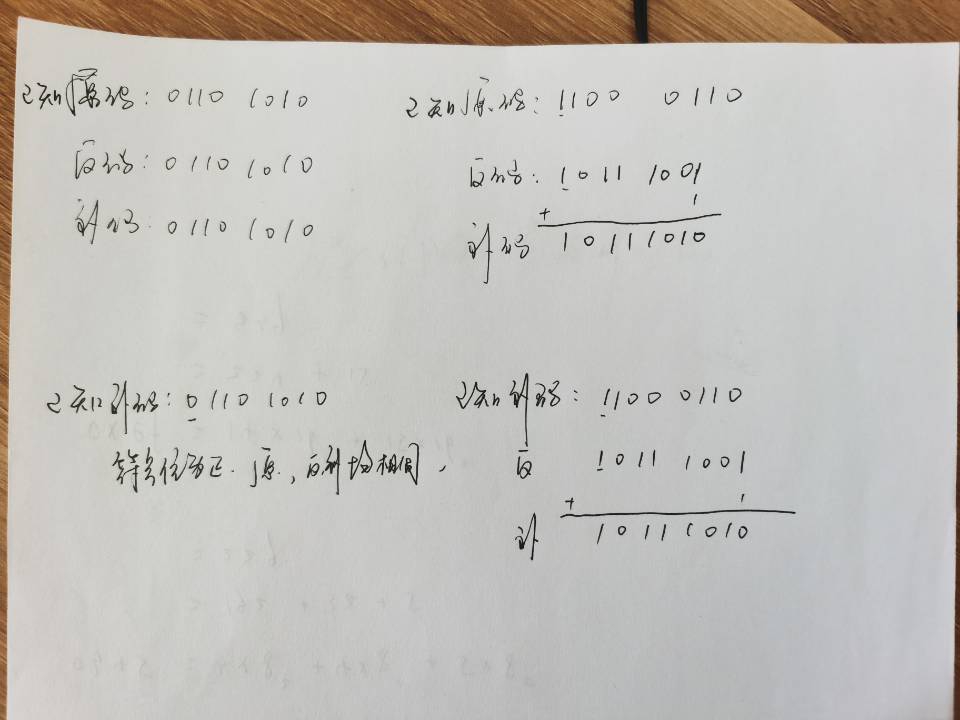 已知原码: 0110 1010
反码: 0110 1010
补码: 0110 1010
已知原码: 1100 0110
反码: 1011 1001
+ 1
补码 10111010
已知补码: 0110 1010
符号位为正. 原, 反补均相同.
已知补码: 1100 0110
反 1011 1001
+ 1
补 10111010